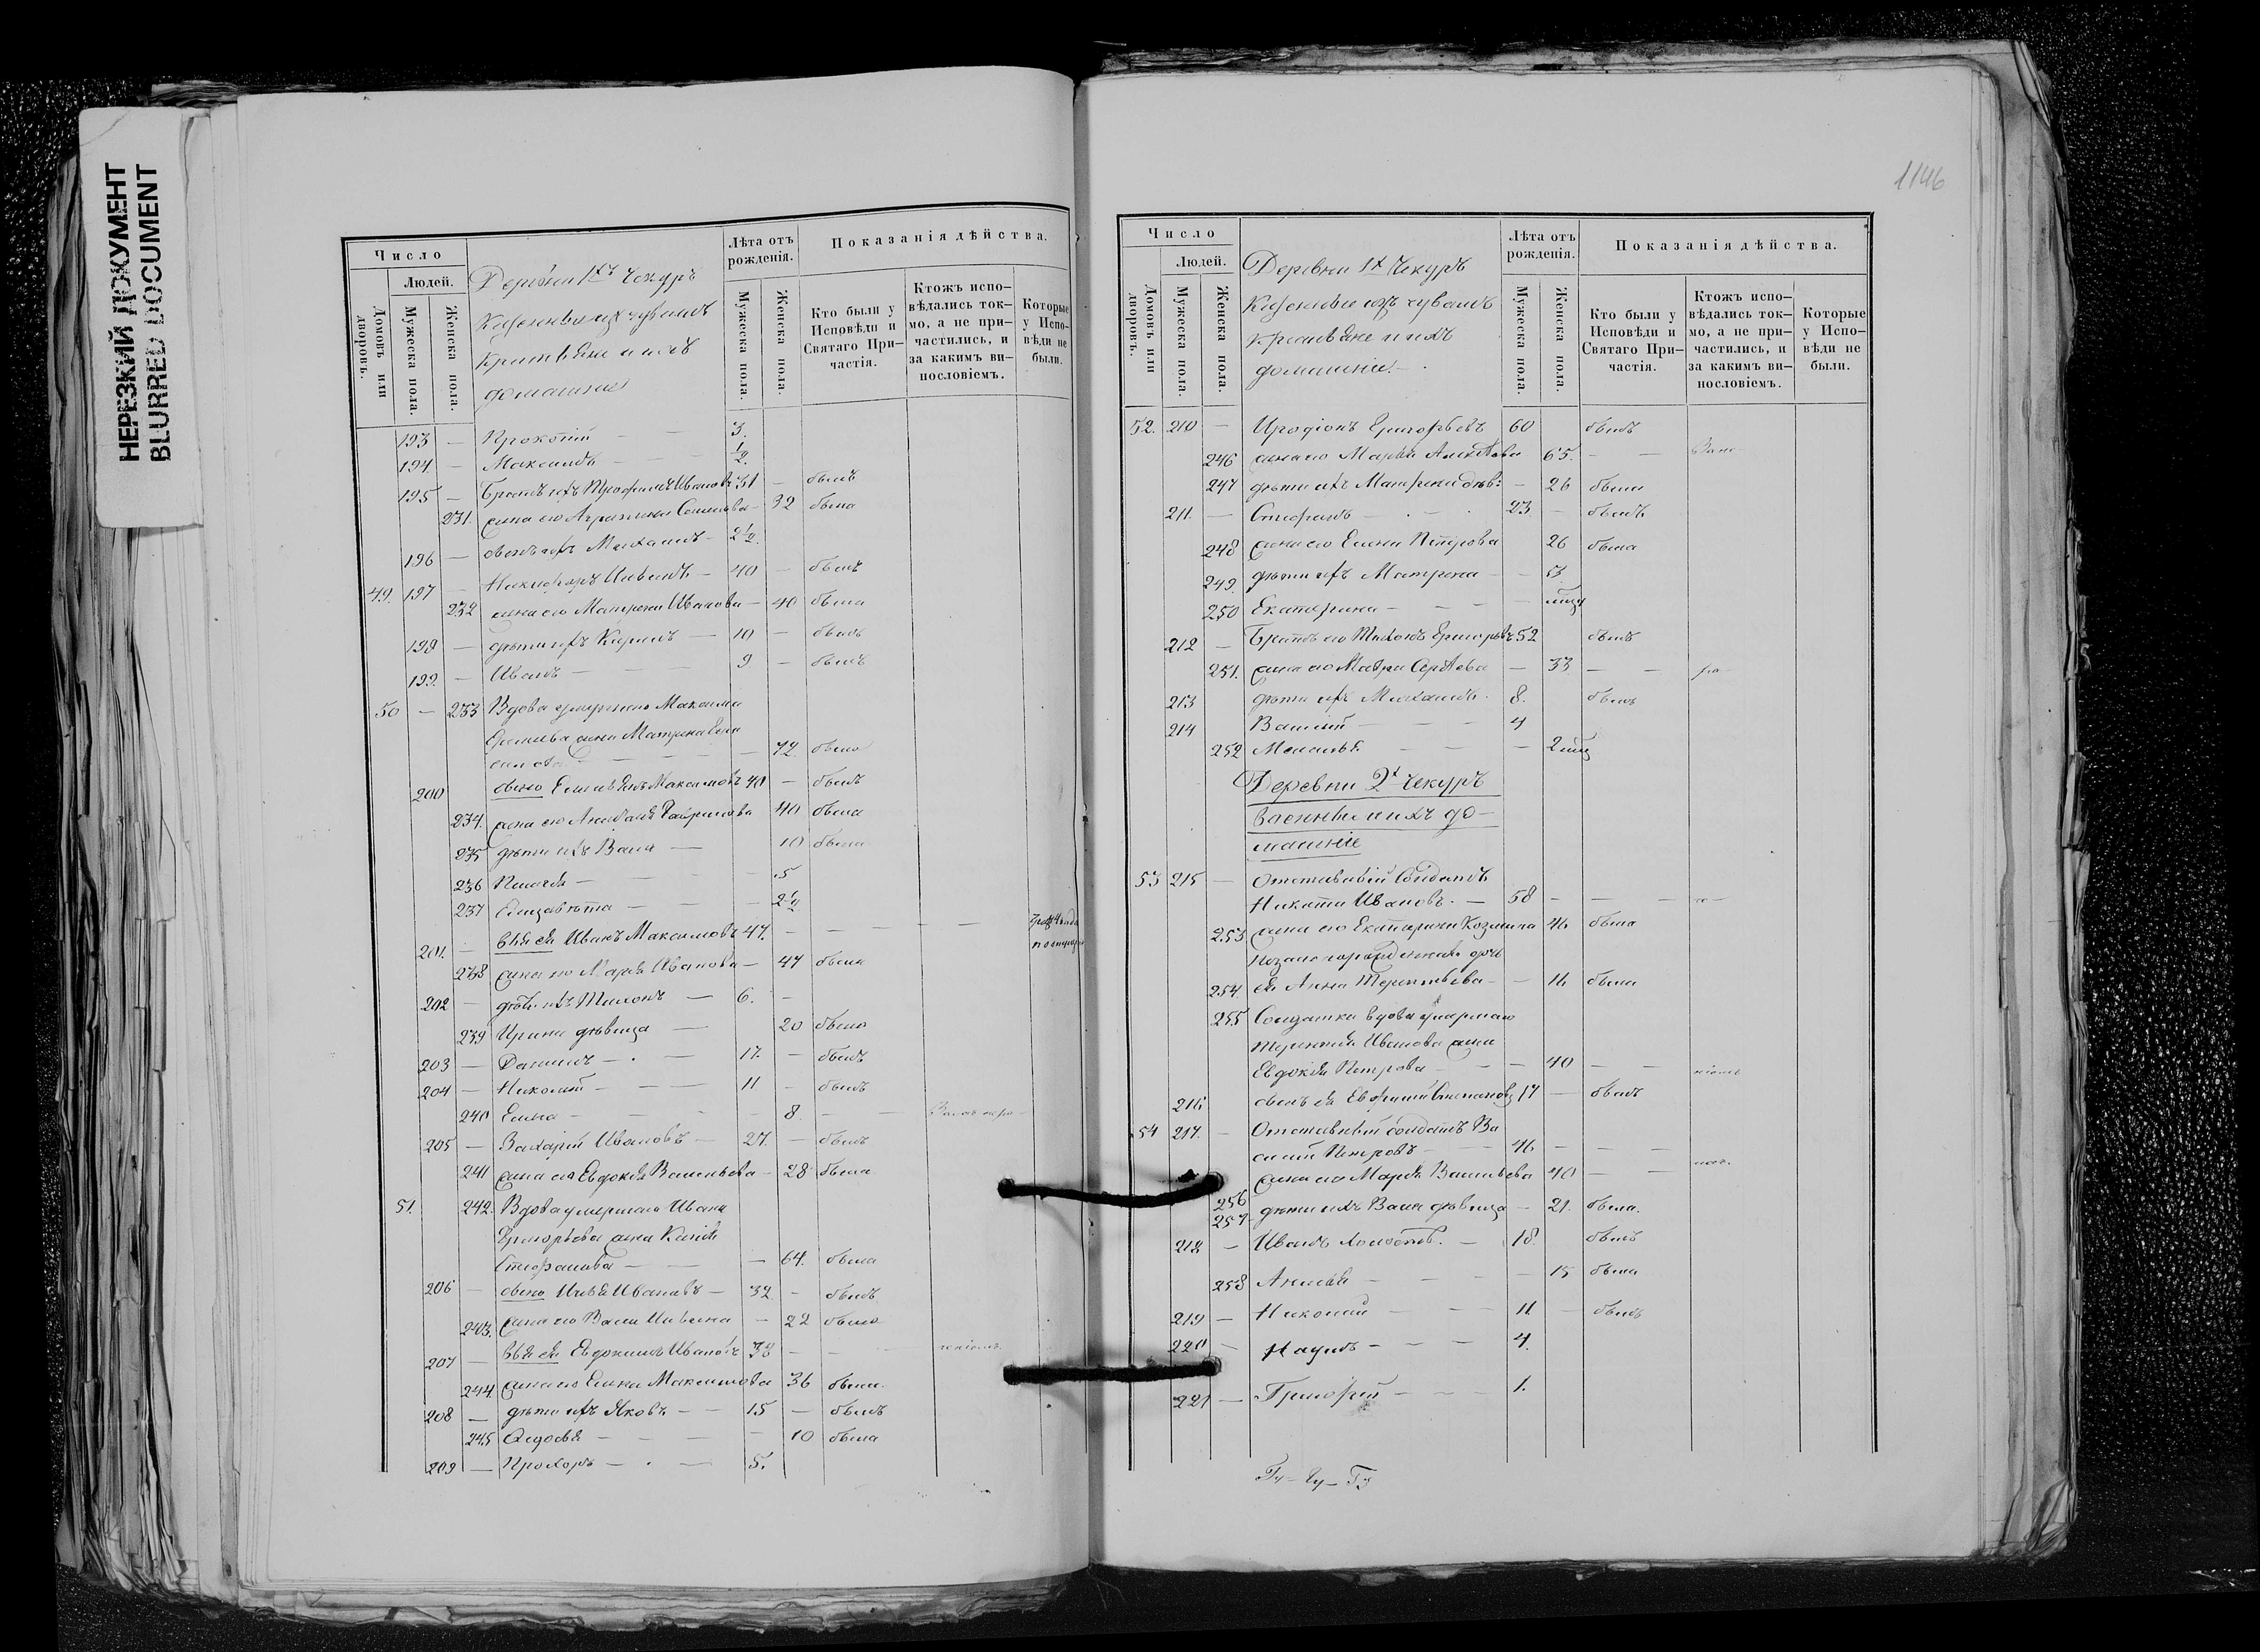 НЕРЕЗКИЙ ДОКУМЕНТ
BLURRED DOCUMENT
Число
Людей.
Домовъ или дворовъ.
Мужеска пола.
Женска пола.
Деревни 1хъ Чекуръ
крестьяне и ихъ
домашніе
Лѣта отъ рожденія.
Мужеска пола.
Женска пола.
Показанія дѣйства.
Кто были у Исповѣди и Святаго Причастія.
Ктожъ исповѣдались токмо, а не причастились, и за какимъ винословіемъ.
Которые у Исповѣди не были.
193 — Прокопій — 3.
194 — Максимъ — 1/2
195 — Братъ ихъ Трофимъ Ивановъ 31 — былъ
231. жена его — 32 была
196 — сынъ ихъ Михаилъ — 2 1/2
49. 197 — Никифоръ — 40 — былъ
232 жена его Матрена Иванова — 40 была
198 — дѣти ихъ Кирилъ — 10 — былъ
199. — Иванъ — 9 — былъ
50 — 233 Вдова умершаго Максима
жена Матрена
— 72 была
200 сынъ Максимовъ 40 — былъ
234 жена его Гаврилова 40 была
235 дѣти ихъ — 10 была
236 Пелагея — 5
237 Елизавѣта — 2 1/2
201. — Иванъ Максимовъ 47. —
238 жена его Марѳа Иванова — 47 была
202 — дѣти ихъ Тихонъ — 6. —
239 Ирина дѣвица — 20 была
203 — Данилъ — 17. — былъ
204 — Николай — 11 — былъ
240 Елена — 8. —
205 — Захарій Ивановъ — 27. — былъ
241 жена его Евдокія Васильева — 28 была
51. 242. Вдова умершаго Ивана
Григорьева жена
Стефанова — 64. была
206 — сынъ Илья Ивановъ — 32. — былъ
243. жена его — 22 была
207 — Евдокимъ Ивановъ 38 —
244 жена его Елена Максимова 36 была
208 — дѣти ихъ Яковъ — 15 — былъ
245 Ѳедосья — 10 была
209 — Прохоръ — 5.
1146
Число
Людей.
Домовъ или дворовъ.
Мужеска пола.
Женска пола.
Деревни 1х Чекуръ
крестьяне и ихъ
домашніе.
Лѣта отъ рожденія.
Мужеска пола.
Женска пола.
Показанія дѣйства.
Кто были у Исповѣди и Святаго Причастія.
Ктожъ исповѣдались токмо, а не причастились, и за какимъ винословіемъ.
Которые у Исповѣди не были.
52. 210 — Иродіонъ Григорьевъ 60 былъ
246 жена его Марья 65. —
247 дѣти ихъ Матрена дѣв: — 26 была
211. — Стефанъ — 23 — былъ
248 жена его Елена Петрова 26 была
249. дѣти ихъ Матрена — 3
250 Екатерина —
212 — Братъ его Тихонъ Григорьевъ 52 былъ
251. жена его Мавра Сергѣева — 33 —
213 дѣти ихъ Михаилъ. 8. былъ
214 Василій — 4
252 Меланья — 2
Деревни 2х Чекуръ
военные и ихъ до-
машніе
53 215 — Отставной Солдатъ
Никита Ивановъ. — 58 —
253 жена его Екатерина Козмина 46 была
254. ея Анна Терентьева — 16 была
255 Солдатка вдова умершаго
Терентія Иванова жена
Евдокія Петрова — 40 —
216 сынъ ея Евфимій Степановъ 17 — былъ
54 217. — Отставной солдатъ Ва
силій Петровъ — 46 —
256 жена его Марья Васильева 40 —
257 дѣти ихъ дѣвица — 21. была.
218 — Иванъ — 18. былъ
258 — 15 была
219 — Николай — 11 — былъ
220 — Наумъ — 4.
221 — Григорій — 1.